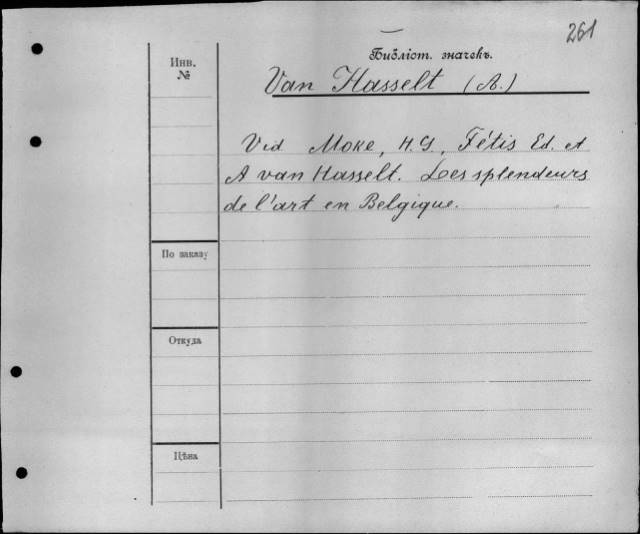 261
Библіот. значекъ.
Инв.
№
Van Hasselt (A.)
Vid Moke, H.G., Fétis Ed. et
A van Hasselt. Les splendeurs
de l'art en Belgique.
По заказу
Откуда
Цѣна